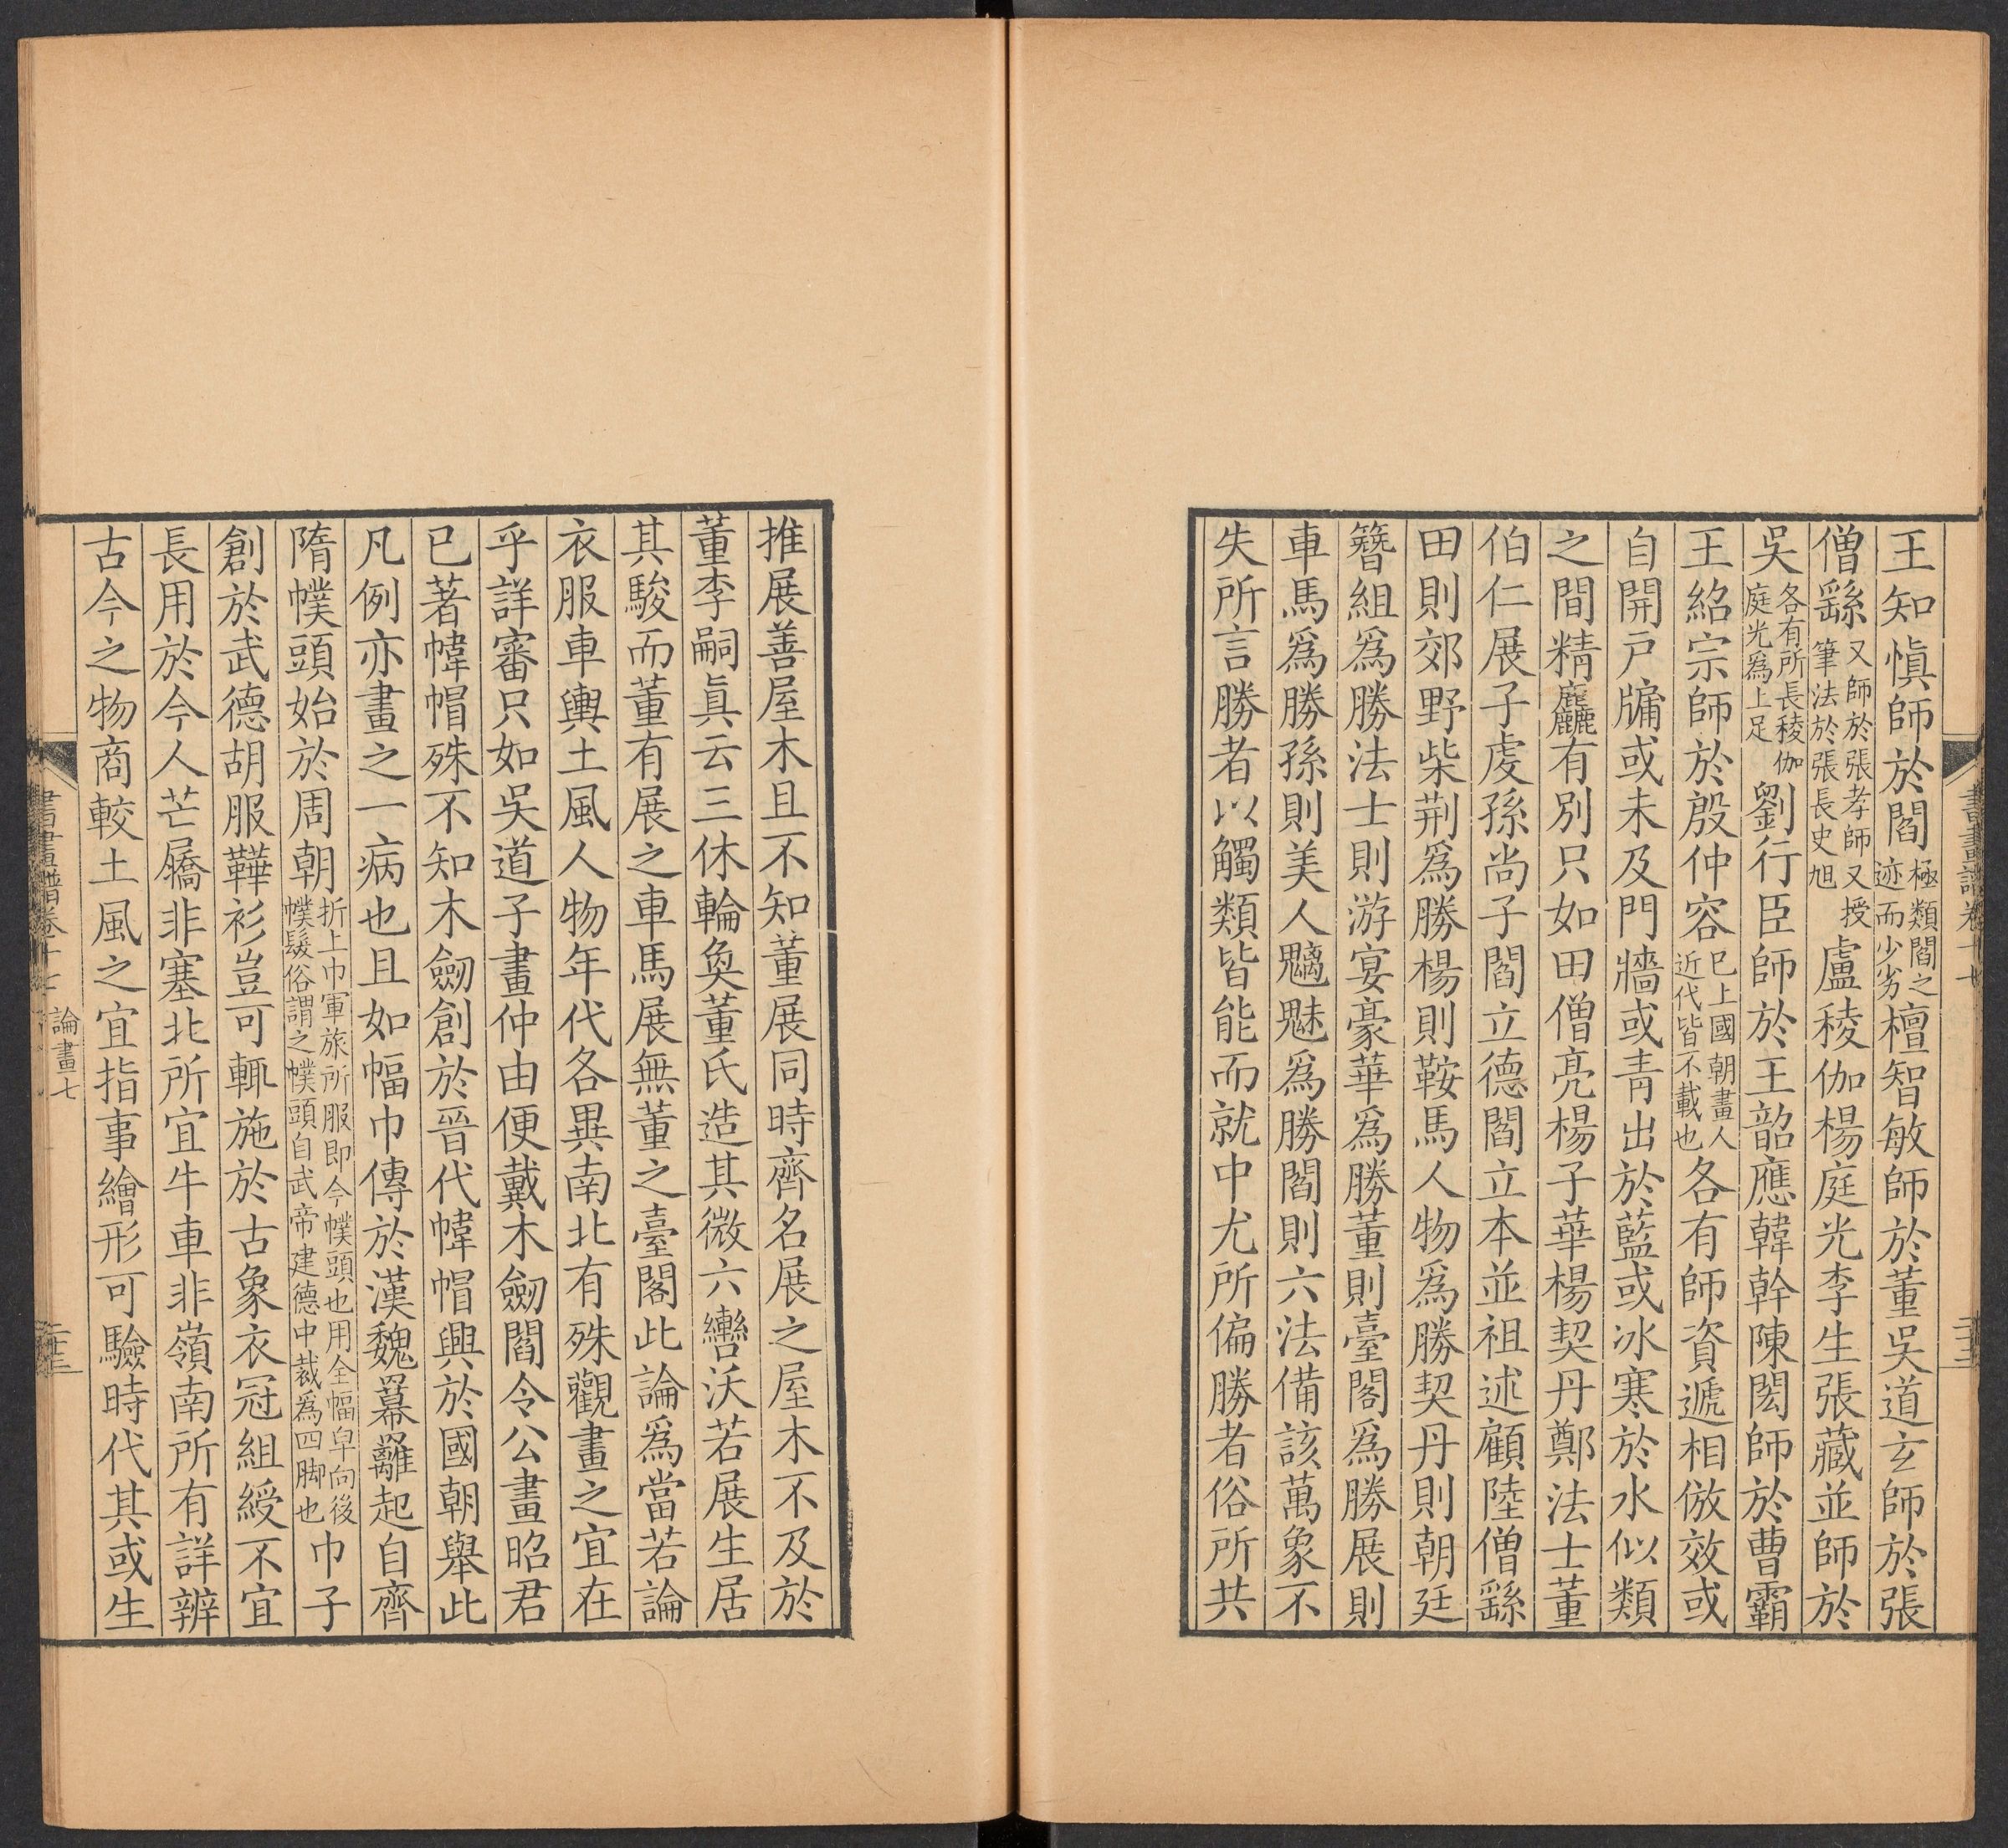 王知愼師於閻極類閻之迹而少劣檀智敏師於董吳道玄師於張
僧繇又師於張孝師又授筆法於張長史旭盧稜伽楊庭光李生張藏並師於
吳各有所長稜伽庭光爲上足劉行臣師於王韶應韓幹陳閎師於曹霸
王紹宗師於殷仲容已上國朝畫人近代皆不載也各有師資遞相倣效或
自開戸牖或未及門牆或青出於藍或冰寒於水似類
之間精麤有別只如田僧亮楊子華楊契丹鄭法士董
伯仁展子虔孫尚子閻立德閻立本並祖述顧陸僧繇
田則郊野柴荆爲勝楊則鞍馬人物爲勝契丹則朝廷
簪組爲勝法士則游宴豪華爲勝董則臺閣爲勝展則
車馬爲勝孫則美人魑魅爲勝閻則六法備該萬象不
失所言勝者以觸類皆能而就中尤所偏勝者俗所共
推展善屋木且不知董展同時齊名展之屋木不及於
董李嗣眞云三休輪奐董氏造其微六轡沃若展生居
其駿而董有展之車馬展無董之臺閣此論爲當若論
衣服車輿土風人物年代各異南北有殊觀畫之宜在
乎詳審只如吳道子畫仲由便戴木劒閻令公畫昭君
已著幃帽殊不知木劒創於晉代幃帽興於國朝舉此
凡例亦畫之一病也且如幅巾傳於漢魏冪䍦起自齊
隋幞頭始於周朝折上巾軍旅所服即今幞頭也用全幅皁向後幞髮俗謂之幞頭自武帝建德中裁爲四脚也巾子
創於武德胡服鞾衫豈可輒施於古象衣冠組綬不宜
長用於今人芒屩非塞北所宜牛車非嶺南所有詳辨
古今之物商較土風之宜指事繪形可驗時代其或生
書畫譜卷十七
論畫七
二十三